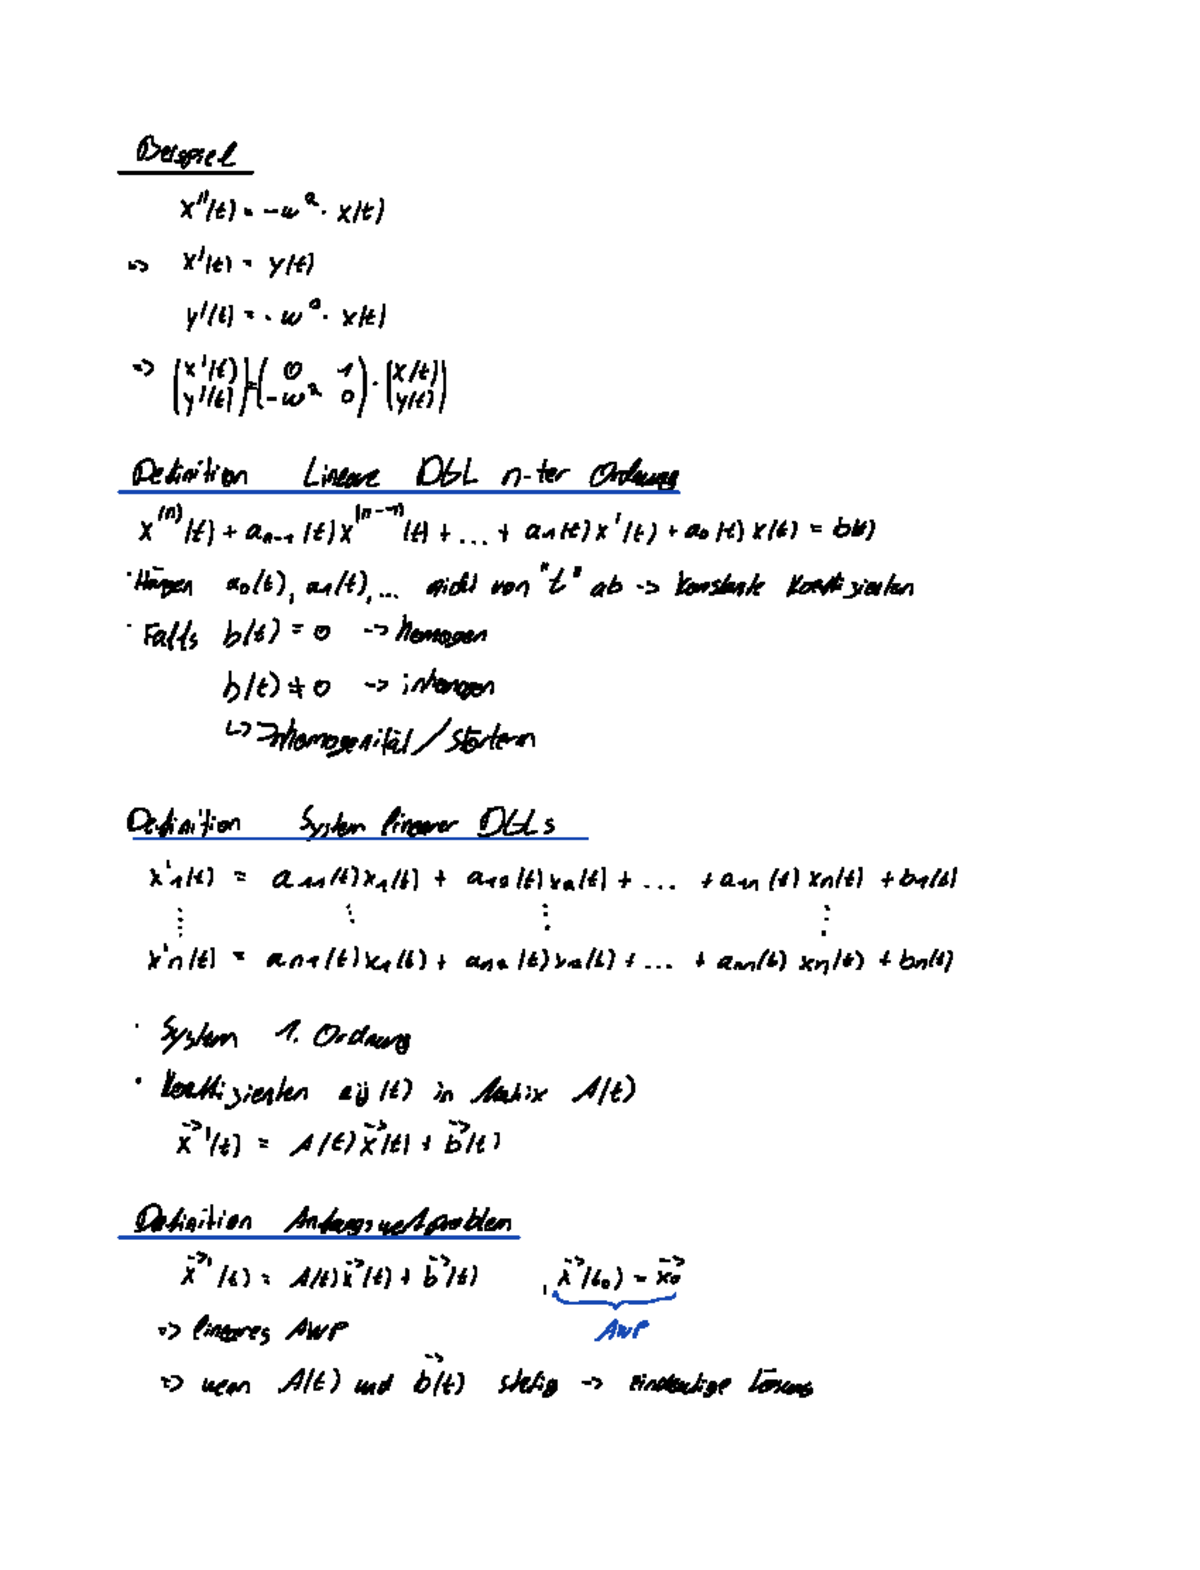 Beispiel
x''(t) = -w². x(t)
=> x'(t) = y(t)
y'(t) = - w². x(t)
=> (x'(t) y'(t)) = (0 1 -w² 0) · (x(t) y(t))
Definition Lineare DGL n-ter Ordnung
x^(n)(t) + a_{n-1}(t) x^(n-1)(t) + ... + a1(t) x'(t) + a0(t) x(t) = b(t)
· Hängen a0(t), a1(t), ... nicht von "t" ab -> konstante Koeffizienten
· Falls b(t) = 0 -> homogen
b(t) ≠ 0 -> inhomogen
↳ Inhomogenität / Störterm
Definition System linearer DGLs
x'1(t) = a11(t) x1(t) + a12(t) x2(t) + ... + a1n(t) xn(t) + b1(t)
⋮ ⋮ ⋮ ⋮
x'n(t) = an1(t) x1(t) + an2(t) x2(t) + ... + ann(t) xn(t) + bn(t)
· System 1. Ordnung
· Koeffizienten aij(t) in Matrix A(t)
x⃗'(t) = A(t) x⃗(t) + b⃗(t)
Definition Anfangswertproblem
x⃗'(t) = A(t) x⃗(t) + b⃗(t) , x⃗(t0) = x⃗0
=> lineares AWP AWP
=> wenn A(t) und b⃗(t) stetig -> eindeutige Lösung